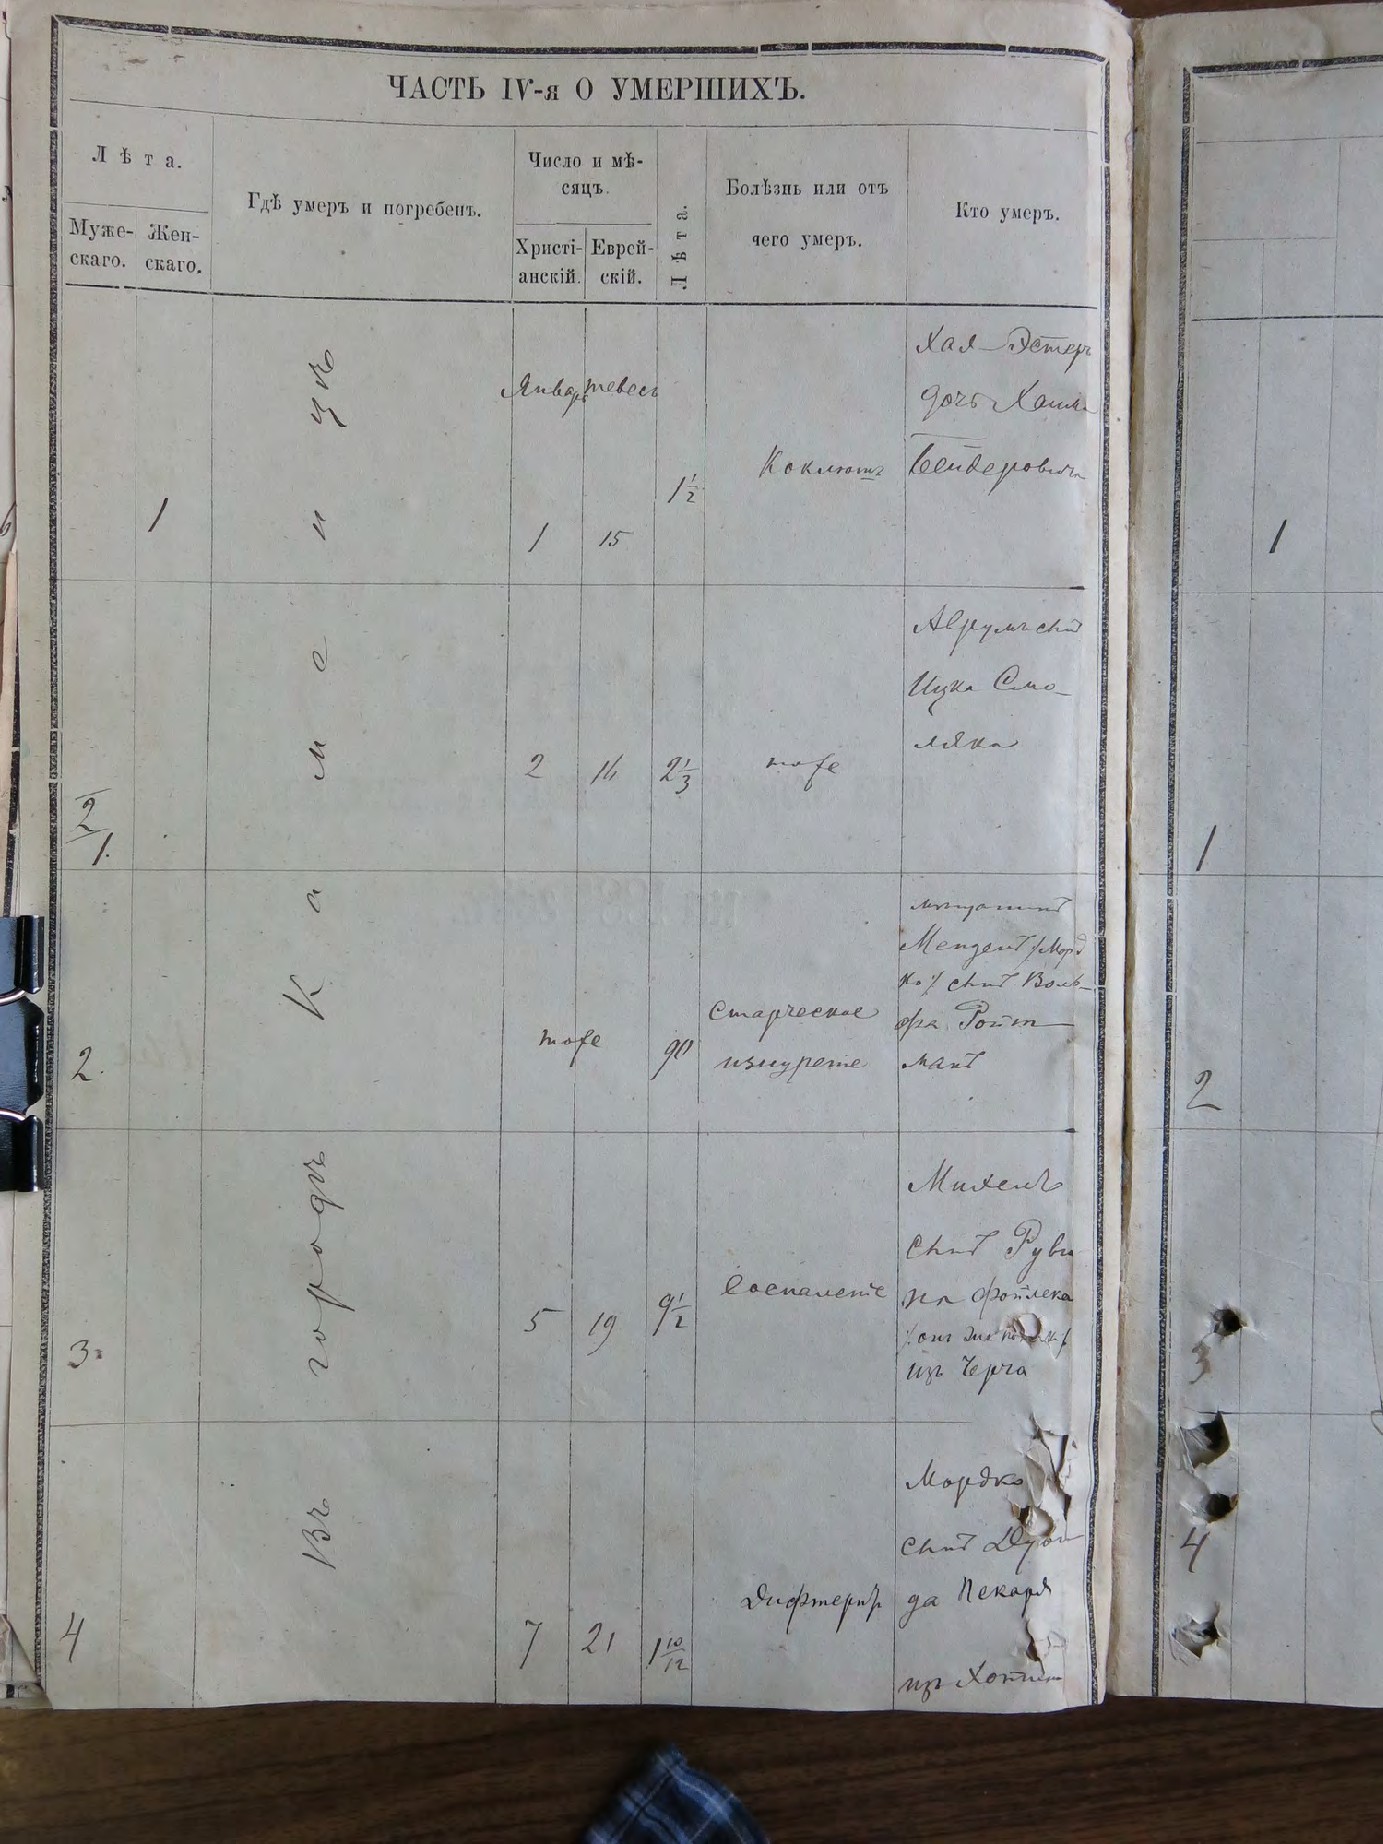 ЧАСТЬ IV-я О УМЕРШИХЪ.
Лѣта.
Муже-
скаго.
Жен-
скаго.
Гдѣ умеръ и погребенъ.
Число и мѣ-
сяцъ.
Христі-
анскій.
Еврей-
скій.
Лѣта.
Болѣзнь или отъ
чего умеръ.
Кто умеръ.
Въ городѣ
Январь
тевесъ
1
1
15
1 1/2
Коклюшъ
Хая-Эстеръ
дочь
1
2
1.
2
16
2 1/3
тоже
Аврумъ сынъ
Ицка Смо-
ляка
1
2.
тоже
90
старческое
изнуреніе
мещанинъ
Мендель /Морд
ко/ сынъ Воль-
фа Ройт
манъ
2
3.
5
19
9 1/2
Воспаленіе
Михель
сынъ Руви
на
изъ
3
4
7
21
1 10/12
Дифтеритъ
Мордко
сынъ
да Пекаря
изъ
4